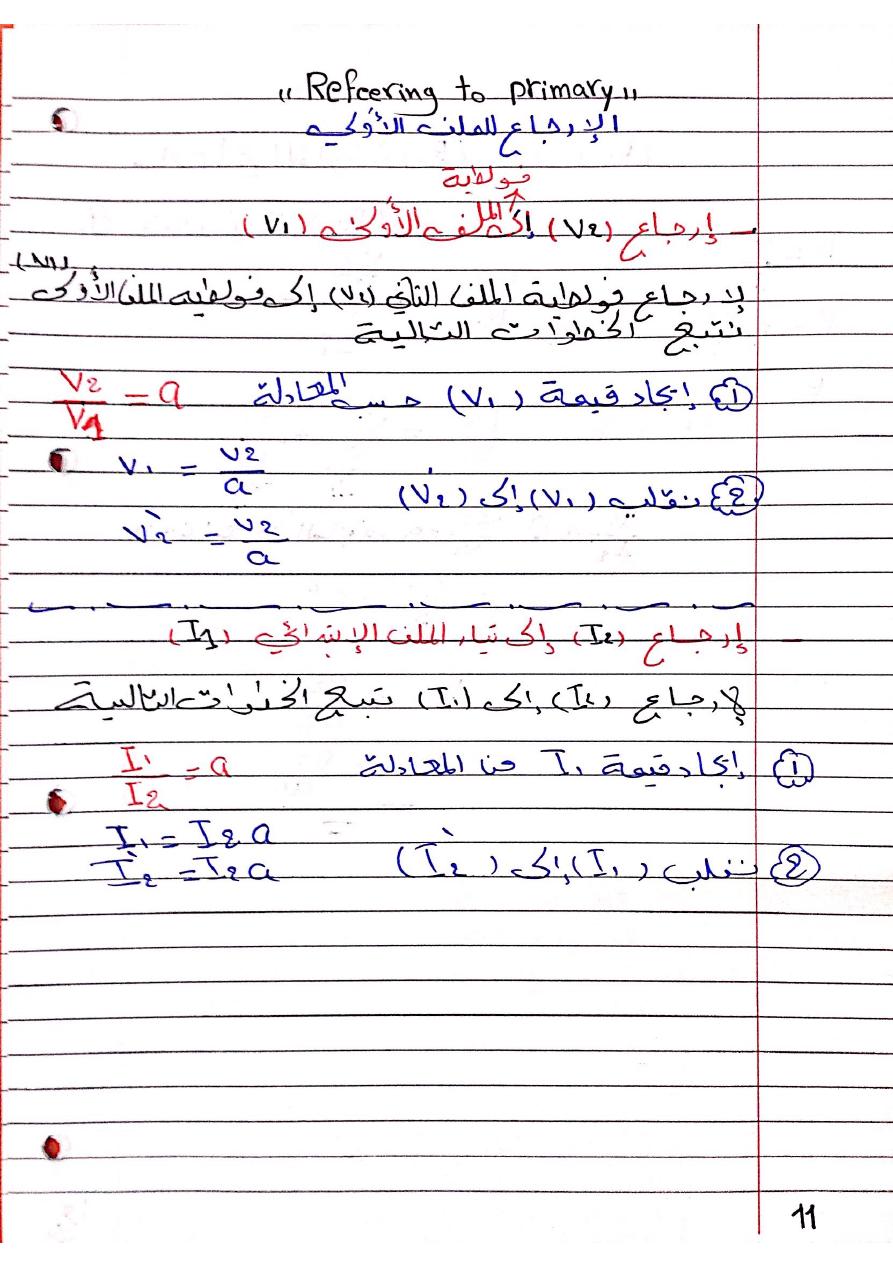 "Refeering to primary"
الإرجاع للملف الأولي
فولطية
- إرجاع (V2) إلى الملف الأولي (V1)
(V1)
لإرجاع فولطية الملف الثاني (V2) إلى فولطية الملف الأولى
نتبع الخطوات التالية
① إيجاد قيمة (V1) حسب المعادلة V2/V1 = a
V1 = V2/a
② نقلب (V1) إلى (V2̀)
V2̀ = V2/a
- إرجاع (I2) إلى تيار الملف الإبتدائي (I1)
لإرجاع (I2) إلى (I1) نتبع الخطوات التالية
① إيجاد قيمة I1 من المعادلة I1/I2 = a
I1 = I2 a
② نقلب (I1) إلى (I2̀)
I2̀ = I2 a
11